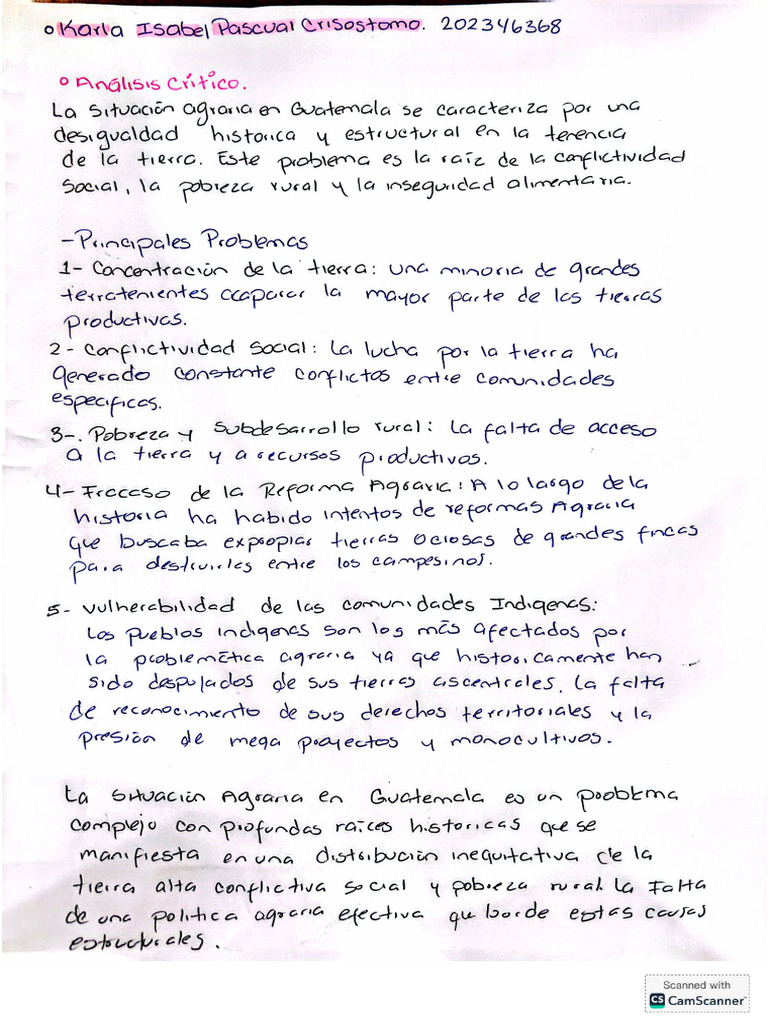 o Karla Isabel Pascual Crisostomo. 202346368
o Análisis Crítico.
La situación agraria en Guatemala se caracteriza por una
desigualdad historica y estructural en la tenencia
de la tierra. Este problema es la raíz de la conflictividad
social, la pobreza rural y la inseguridad alimentaria.
- Principales Problemas
1- Concentración de la tierra: una minoria de grandes
terratenientes acaparar la mayor parte de las tierras
productivas.
2- Conflictividad Social: La lucha por la tierra ha
generado constante conflictos entre comunidades
especificas.
3-. Pobreza y Subdesarrollo rural: La falta de acceso
a la tierra y a recursos productivos.
4- Fracaso de la Reforma Agraria: A lo largo de la
historia ha habido intentos de reformas Agraria
que buscaba expropiar tierras ociosas de grandes fincas
para destruirles entre los campesinos.
5- Vulnerabilidad de las comunidades Indigenas:
Los pueblos indigenas son los más afectados por
la problemática agraria ya que historicamente han
sido despulados de sus tierras ascentrales. La falta
de reconocimiento de sus derechos territoriales y la
presión de mega proyectos y monocultivos.
La situación Agraria en Guatemala es un problema
complejo con profundas raíces historicas que se
manifiesta en una distribución inequitativa de la
tierra alta conflictiva social y pobreza rural. La Falta
de una politica agraria efectiva que borde estas causas
estructurales.
Scanned with
CS CamScanner